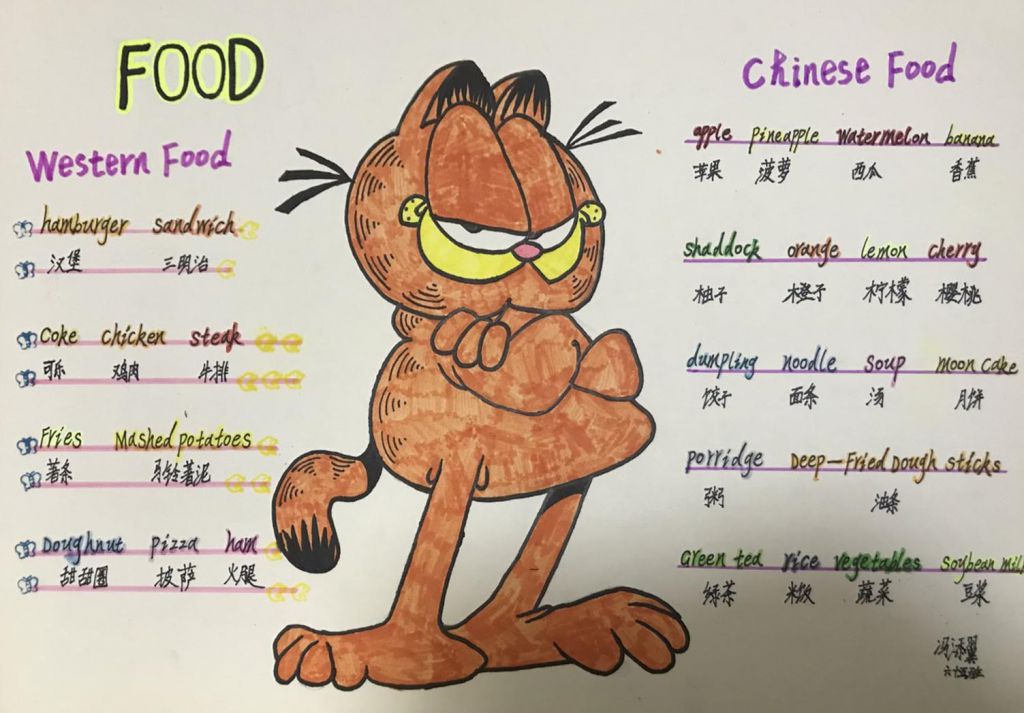 FOOD
Western Food
hamburger sandwich
汉堡 三明治
Coke chicken steak
可乐 鸡肉 牛排
Fries Mashed potatoes
薯条 马铃薯泥
Doughnut pizza ham
甜甜圈 披萨 火腿
Chinese Food
apple pineapple watermelon banana
苹果 菠萝 西瓜 香蕉
shaddock orange lemon cherry
柚子 橙子 柠檬 樱桃
dumpling noodle soup moon cake
饺子 面条 汤 月饼
porridge Deep-Fried Dough sticks
粥 油条
Green tea rice vegetables Soybean mil
绿茶 米饭 蔬菜 豆浆